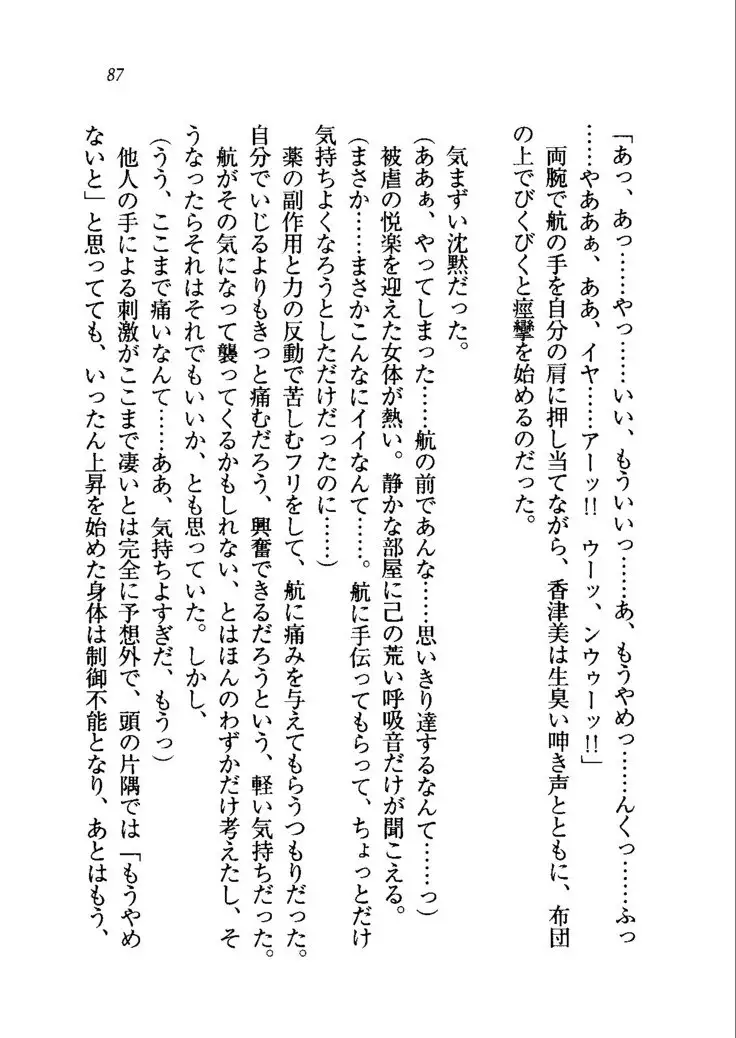 87
「あっ、あっ……やっ……いい、もういいっ……あ、もうやめっ……んくっ……ふっ
……やああぁ、ああ、イヤ……アーッ!! ウーッ、ンウゥーッ!!」
両腕で航の手を自分の肩に押し当てながら、香津美は生臭い呻き声とともに、布団
の上でびくびくと痙攣を始めるのだった。
気まずい沈黙だった。
(ああぁ、やってしまった……航の前であんな……思いきり達するなんて……っ)
被虐の悦楽を迎えた女体が熱い。静かな部屋に己の荒い呼吸音だけが聞こえる。
(まさか……まさかこんなにイイなんて……。航に手伝ってもらって、ちょっとだけ
気持ちよくなろうとしただけだったのに……)
薬の副作用と力の反動で苦しむフリをして、航に痛みを与えてもらうつもりだった。
自分でいじるよりもきっと痛むだろう、興奮できるだろうという、軽い気持ちだった。
航がその気になって襲ってくるかもしれない、とはほんのわずかだけ考えたし、そ
うなったらそれはそれでもいいか、とも思っていた。しかし、
(うう、ここまで痛いなんて……ああ、気持ちよすぎだ、もうっ)
他人の手による刺激がここまで凄いとは完全に予想外で、頭の片隅では「もうやめ
ないと」と思ってても、いったん上昇を始めた身体は制御不能となり、あとはもう、